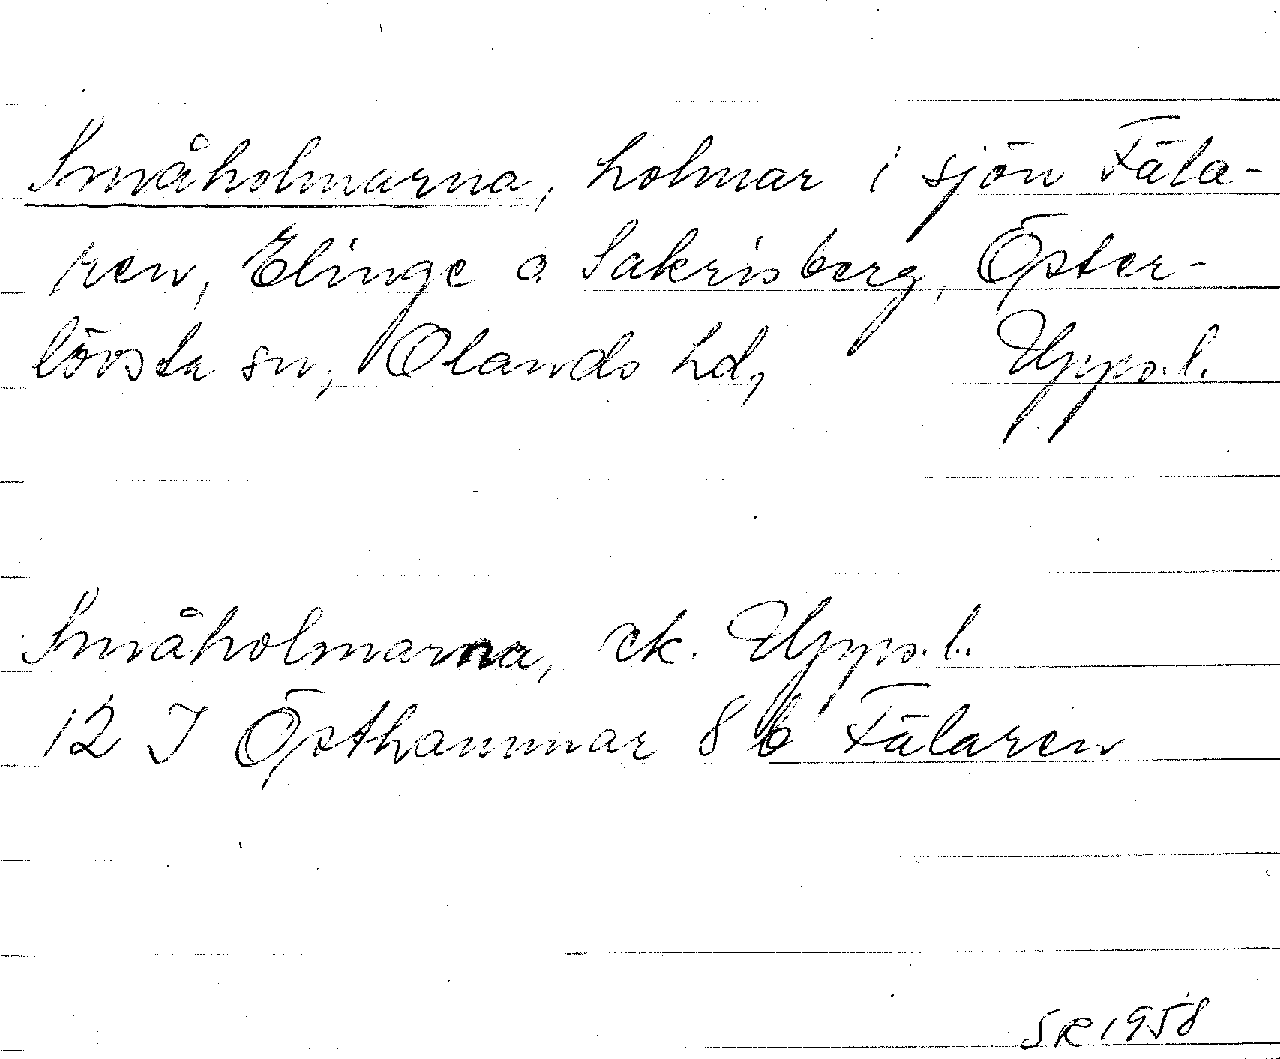 Småholmarna, holmar i sjön Fäla-
ren, Elinge o Sakrisberg, Öster-
lövsta sn, Olands hd, Upps.l.
Småholmarna, ek. Upps.l.
12 I Östhammar 8 b Fälaren
SR 1958